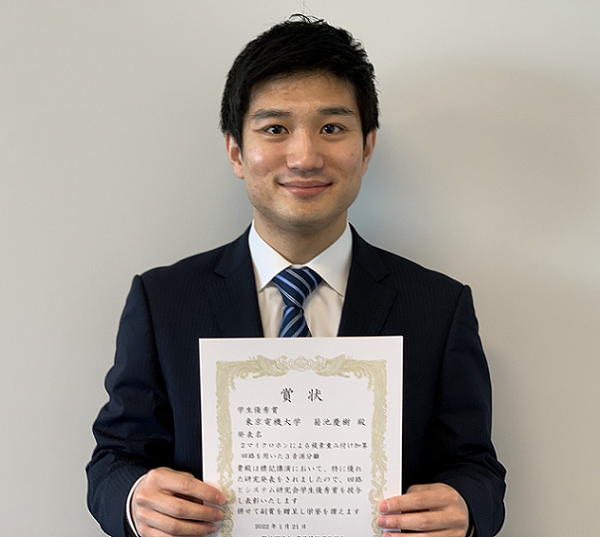 賞状
学生優秀賞
東京電機大学 菊池慶樹 殿
発表名
2マイクロホンによる複素重み付け加算
回路を用いた3音源分離
貴殿は標記講演において、特に優れ
た研究発表をされましたので、回路
とシステム研究会学生優秀賞を授与
し表彰いたします
併せて副賞を贈呈し栄誉を讃えます
2022年1月21日